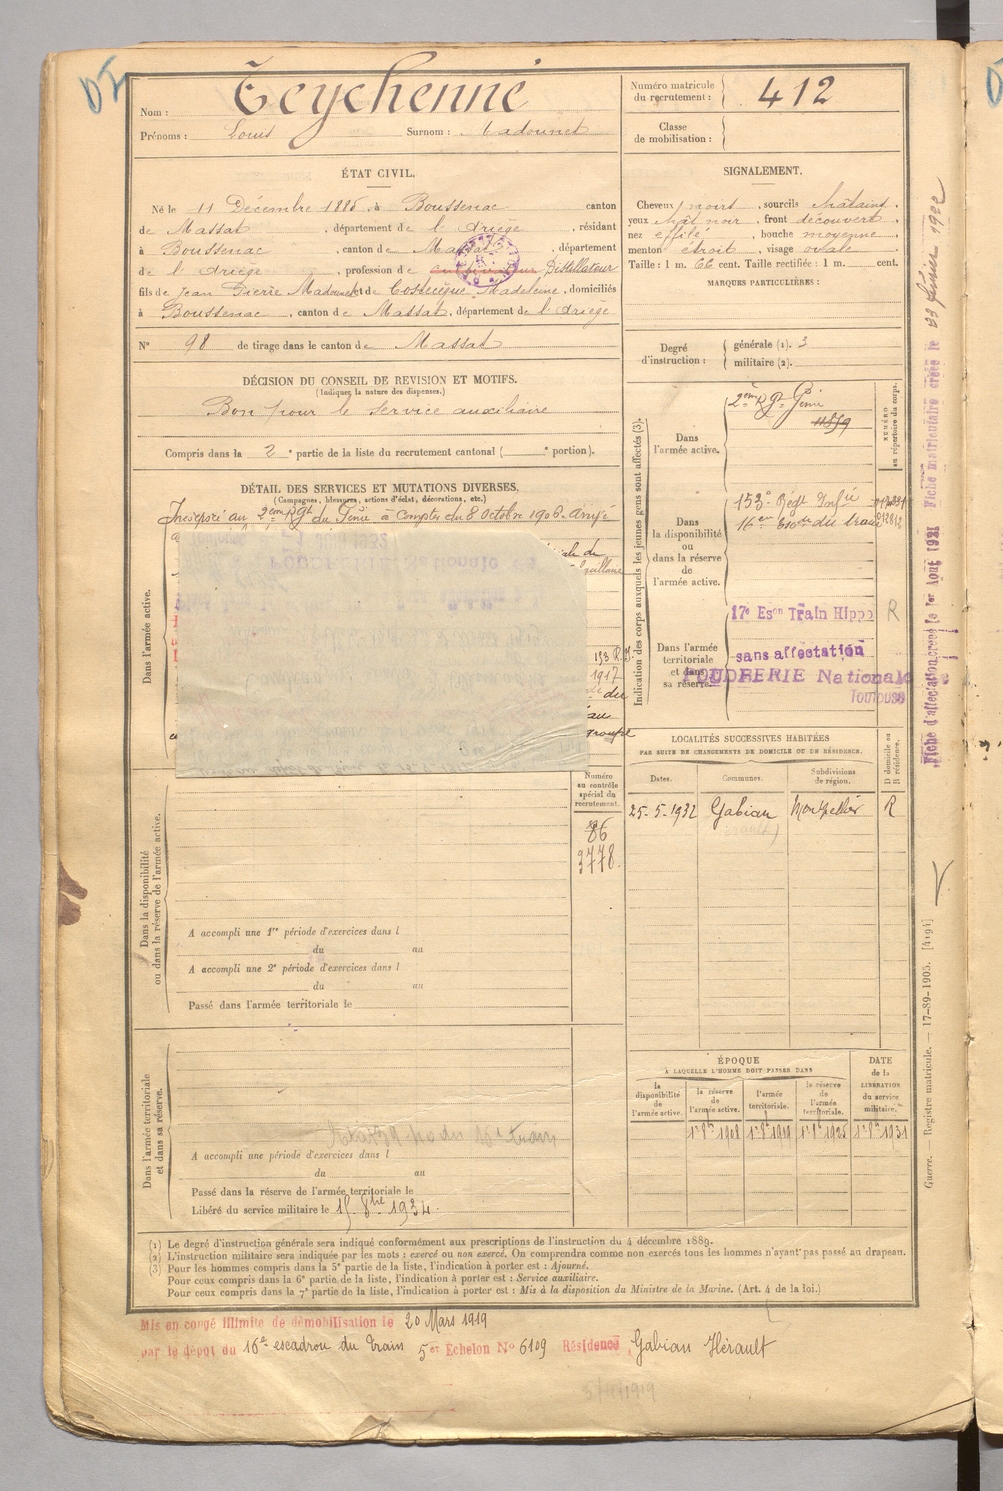 Nom : Teychenné
Prénoms : Louis Surnom : Madounet
Numéro matricule du recrutement : 412
Classe de mobilisation :
ÉTAT CIVIL.
Né le 11 Décembre 1885, à Boussenac canton
de Massat, département de l'Ariège, résidant
à Boussenac, canton de Massat, département
de l'Ariège, profession de cultivateur Distillateur
fils de Jean Pierre Madounet et de Madeleine, domiciliés
à Boussenac, canton de Massat, département de l'Ariège
N° 98 de tirage dans le canton de Massat
SIGNALEMENT.
Cheveux noirs, sourcils châtains,
yeux chât noir, front découvert
nez effilé, bouche moyenne,
menton étroit, visage ovale
Taille : 1 m. 66 cent. Taille rectifiée : 1 m. cent.
MARQUES PARTICULIÈRES :
Degré d'instruction :
générale (1). 3
militaire (2).
DÉCISION DU CONSEIL DE REVISION ET MOTIFS.
(Indiquer la nature des dispenses.)
Bon pour le service auxiliaire
Compris dans la 2e partie de la liste du recrutement cantonal ( e portion).
DÉTAIL DES SERVICES ET MUTATIONS DIVERSES.
(Campagnes, blessures, actions d'éclat, décorations, etc.)
Incorporé au 2ème Rgt du Génie à compter du 8 octobre 1906. Arrivé
153 R.I.
1917
du
au
groupe
Dans l'armée active.
Indication des corps auxquels les jeunes gens sont affectés (3).
NUMÉRO au répertoire du corps.
Dans l'armée active.
2ème Rgt Génie
Dans la disponibilité ou dans la réserve de l'armée active.
153e Régt Infie
16e esc. du train
Dans l'armée territoriale et dans sa réserve.
17e Eson Train Hippo R
sans affectation
POUDRERIE Nationale de
Toulouse
Fiche d'affectation créée le 1er Août 1921
Fiche matriculaire créée le 23 février 1922
LOCALITÉS SUCCESSIVES HABITÉES
PAR SUITE DE CHANGEMENTS DE DOMICILE OU DE RÉSIDENCE.
D domicile ou R résidence.
Dates. Communes. Subdivisions de région.
25-5-1932 Gabian Montpellier R
(Hérault)
Numéro au contrôle spécial du recrutement.
86
3778.
Dans la disponibilité ou dans la réserve de l'armée active.
A accompli une 1re période d'exercices dans l
du au
A accompli une 2e période d'exercices dans l
du au
Passé dans l'armée territoriale le
Dans l'armée territoriale et dans sa réserve.
A accompli une période d'exercices dans l
du au
Passé dans la réserve de l'armée territoriale le
Libéré du service militaire le 15 8bre 1934.
ÉPOQUE
À LAQUELLE L'HOMME DOIT PASSER DANS
DATE de la LIBÉRATION du service militaire.
la disponibilité de l'armée active. la réserve de l'armée active. l'armée territoriale. la réserve de l'armée territoriale.
1er 8bre 1908 1er 8bre 1919 1er 8bre 1925 1er 8bre 1931
(1) Le degré d'instruction générale sera indiqué conformément aux prescriptions de l'instruction du 4 décembre 1889.
(2) L'instruction militaire sera indiquée par les mots : exercé ou non exercé. On comprendra comme non exercés tous les hommes n'ayant pas passé au drapeau.
(3) Pour les hommes compris dans la 5e partie de la liste, l'indication à porter est : Ajourné.
Pour ceux compris dans la 6e partie de la liste, l'indication à porter est : Service auxiliaire.
Pour ceux compris dans la 7e partie de la liste, l'indication à porter est : Mis à la disposition du Ministre de la Marine. (Art. 4 de la loi.)
Guerre. — Registre matricule. — 17-89-1905. [4194]
Mis en congé illimité de démobilisation le 20 Mars 1919
par le dépôt du 16e escadron du train 5e Echelon No 6109 Résidence Gabian Hérault